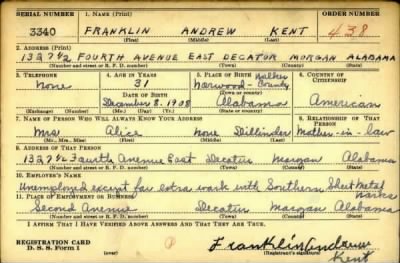 SERIAL NUMBER 1. NAME (Print) ORDER NUMBER
3340 FRANKLIN ANDREW KENT 438
(First) (Middle) (Last)
2. ADDRESS (Print)
1327½ FOURTH AVENUE EAST DECATUR MORGAN ALABAMA
(Number and street or R. F. D. number) (Town) (County) (State)
3. TELEPHONE 4. AGE IN YEARS 5. PLACE OF BIRTH 6. COUNTRY OF CITIZENSHIP
None 31 Norwood - Walker County
DATE OF BIRTH (Town or county)
December 8, 1908 Alabama American
(Exchange) (Number) (Mo.) (Day) (Yr.) (State or country)
7. NAME OF PERSON WHO WILL ALWAYS KNOW YOUR ADDRESS 8. RELATIONSHIP OF THAT PERSON
Mrs Alice None Dillinder Mother-in-law
(Mr., Mrs., Miss) (First) (Middle) (Last)
9. ADDRESS OF THAT PERSON
1327½ Fourth Avenue East Decatur Morgan Alabama
(Number and street or R. F. D. number) (Town) (County) (State)
10. EMPLOYER'S NAME
Unemployed except for extra work with Southern Sheet Metal Works
11. PLACE OF EMPLOYMENT OR BUSINESS
Second Avenue Decatur Morgan Alabama
(Number and street or R. F. D. number) (Town) (County) (State)
I AFFIRM THAT I HAVE VERIFIED ABOVE ANSWERS AND THAT THEY ARE TRUE.
REGISTRATION CARD
D. S. S. Form 1
Franklin Andrew Kent
(Registrant's signature)